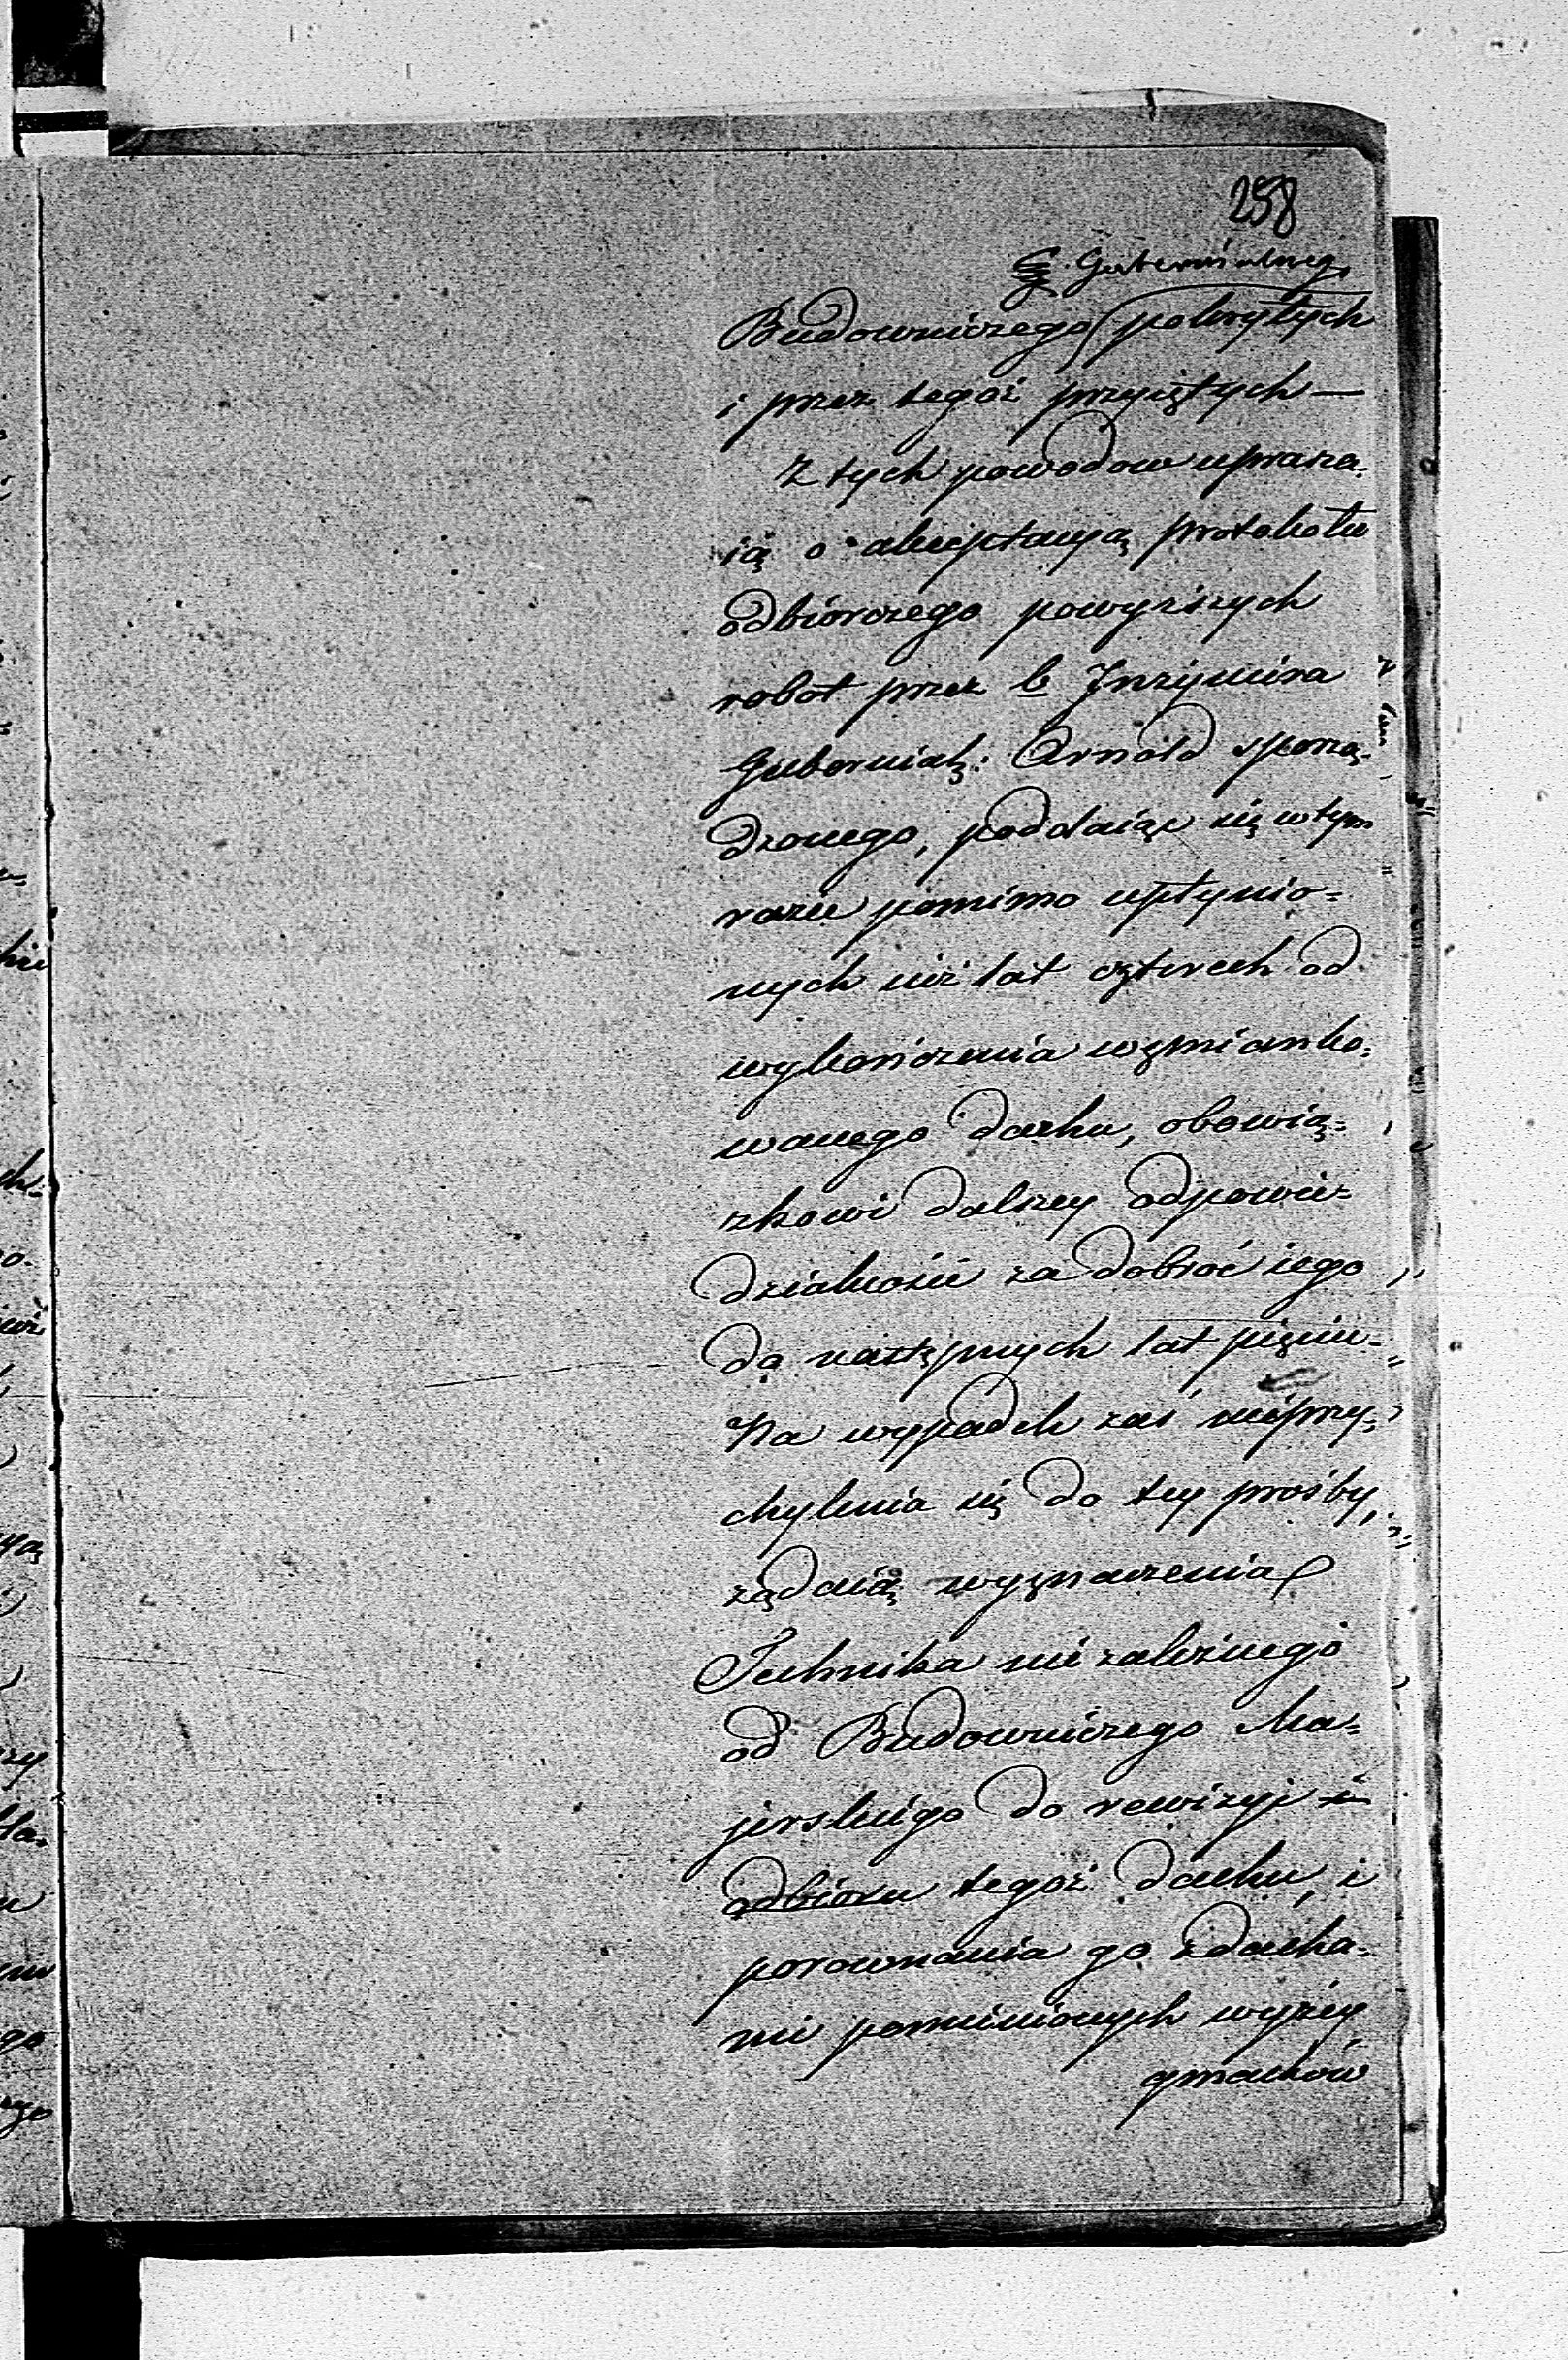 258
G. Gubernialnego
Budowniczego pokrytych
i przez tegoż przyiętych —
Z tych powodow uprasza-
ią o akceptacyą protokołu
odbiorczego powyższych
robot przez b Inżyniera
Gubernialg: Arnold sporzą-
dzonego, poddaiąc się w tym
razie pomimo upłynio-
nych iuż lat czterech od
wykończenia wzmianko-
wanego dachu, obowią-
zkowi dalszey odpowie-
dzialności za dobroć iego
do następnych lat pięciu-
Na wypadek zaś nieprzy-
chylenia się do tey prośby,
żądaią wyznaczenia
Technika nie zależnego
od Budowniczego Ma-
jerskiego do rewizyi i
odbioru tegoż dachu i
porownania go z dacha-
mi pomienionych wyżey
gmachów